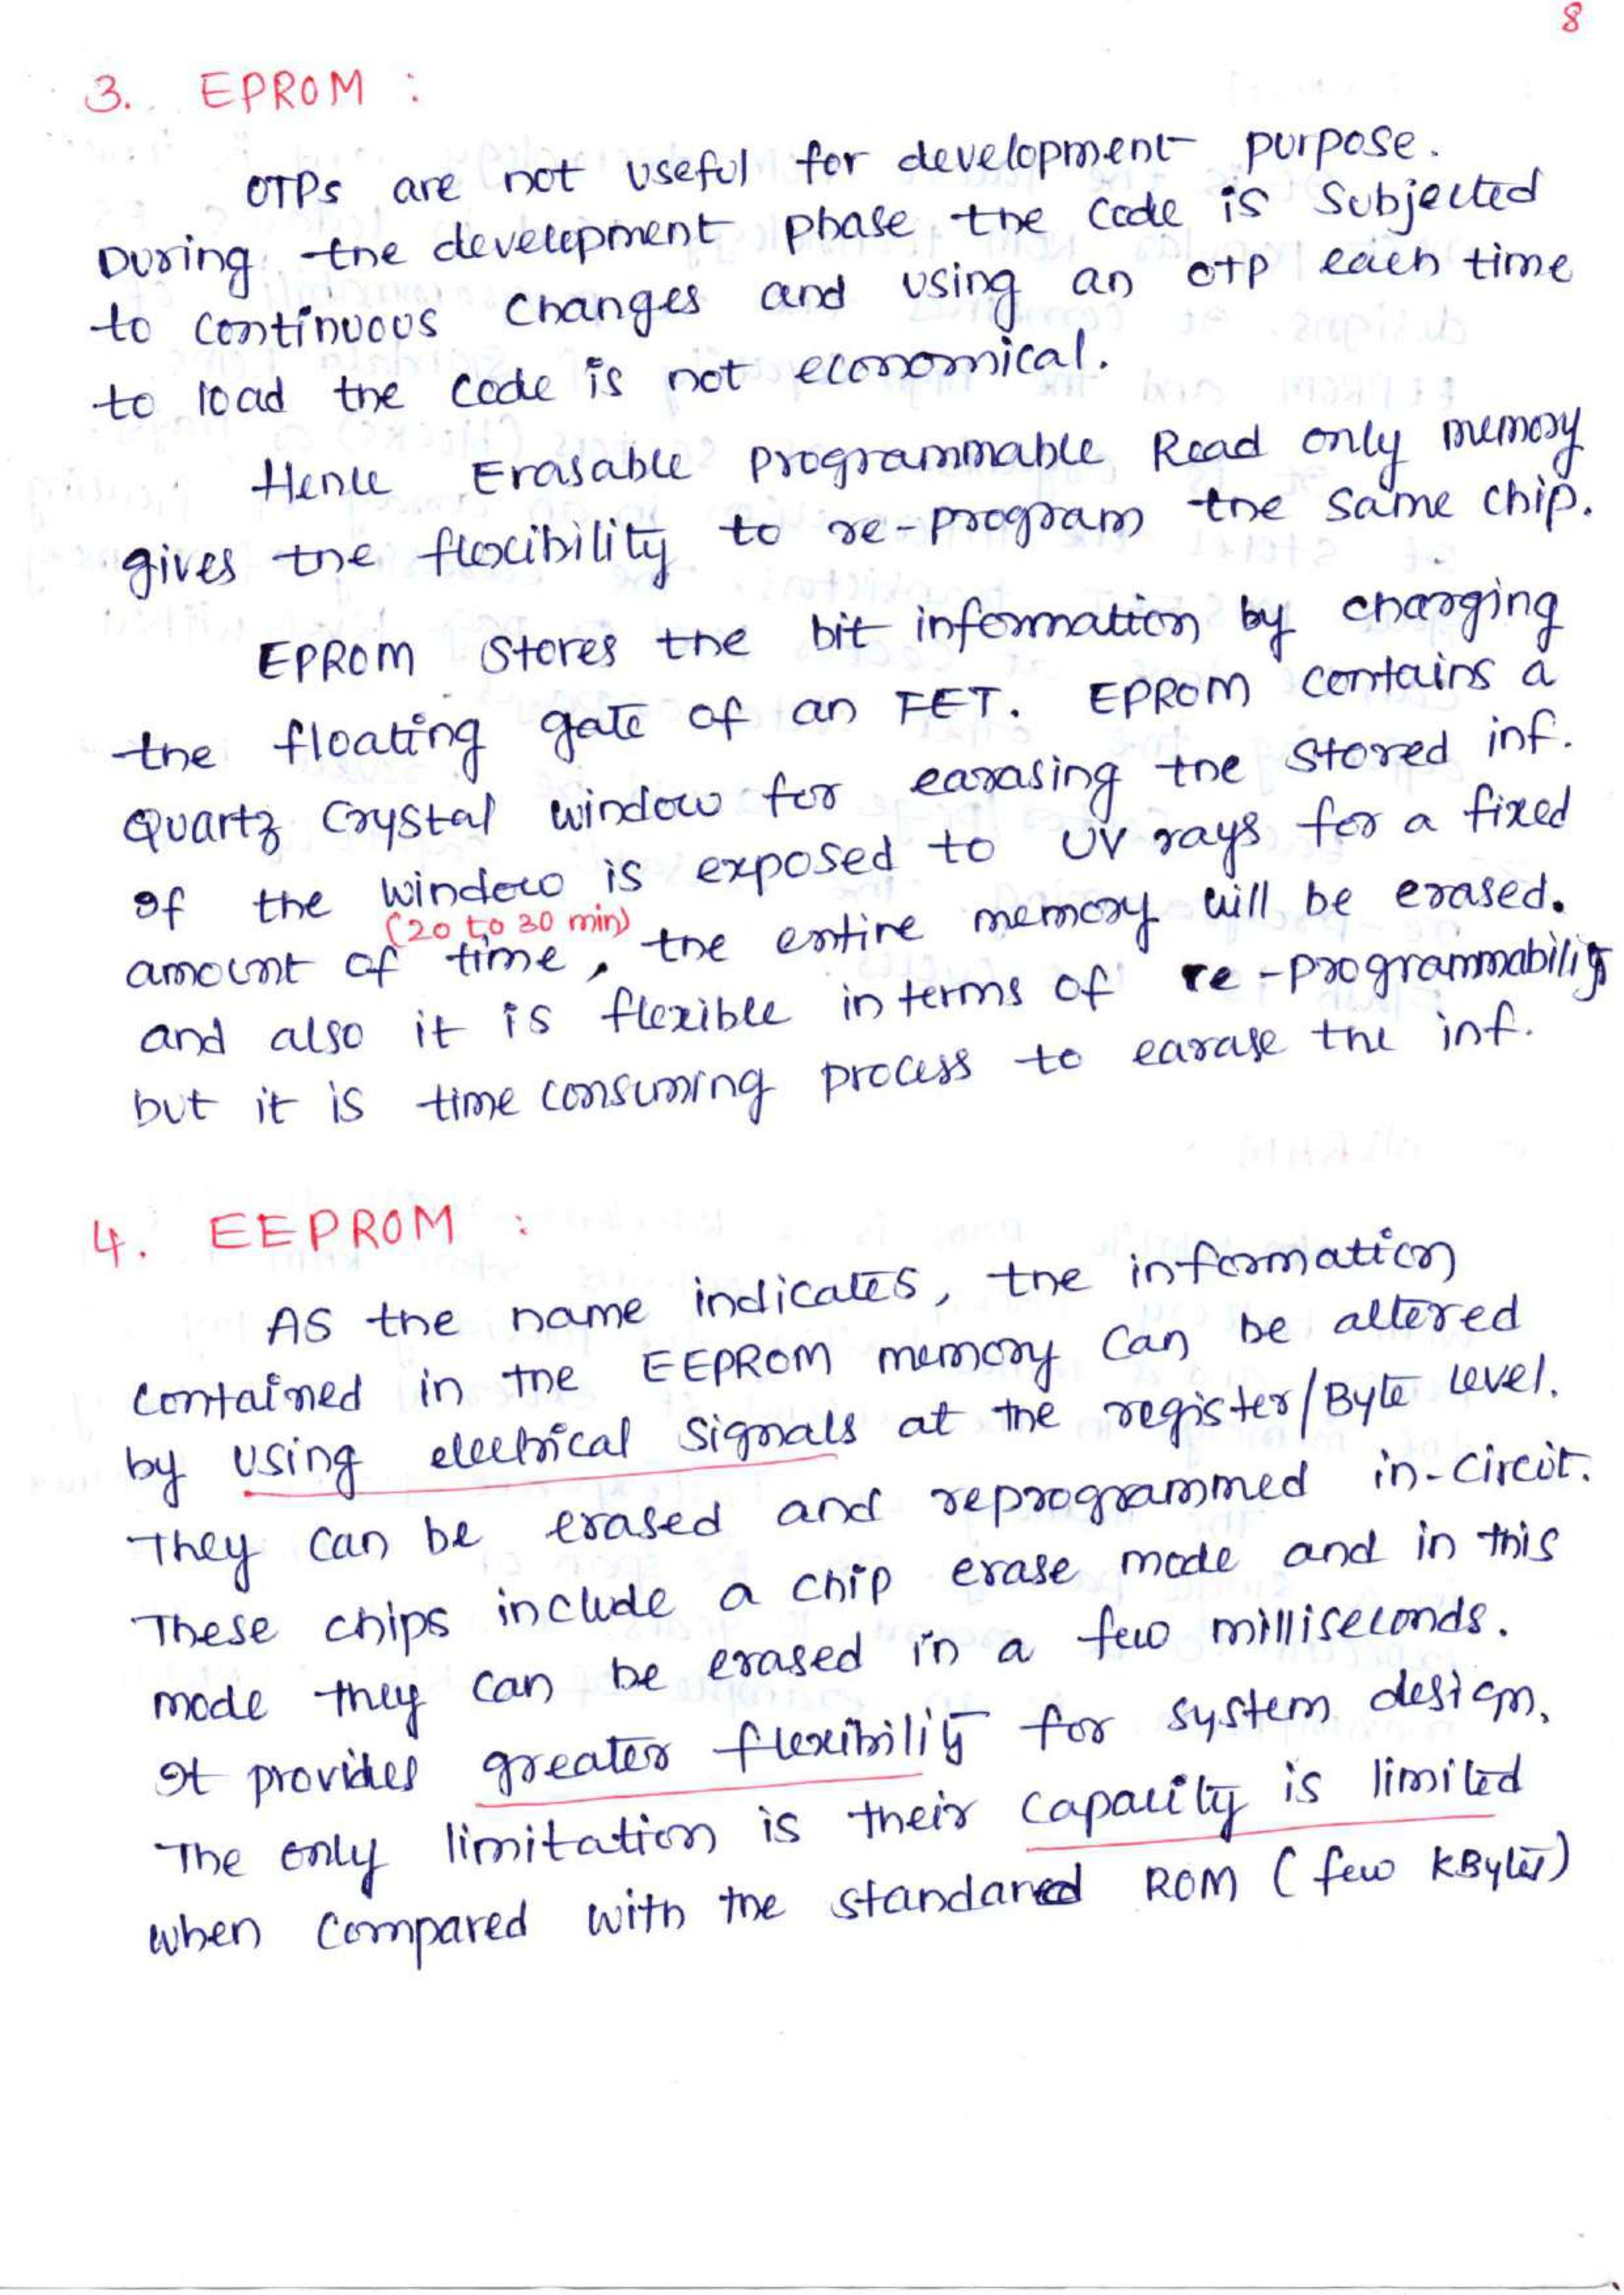 8
3. EPROM :
OTPs are not useful for development purpose.
During the development phase the code is subjected
to continuous changes and using an OTP each time
to load the code is not economical.
Hence Erasable Programmable Read only memory
gives the flexibility to re-program the same chip.
EPROM stores the bit information by charging
the floating gate of an FET. EPROM contains a
Quartz Crystal window for earasing the stored inf.
If the window is exposed to UV rays for a fixed
(20 to 30 min)
amount of time, the entire memory will be erased.
and also it is flexible in terms of re-programmability
but it is time consuming process to earase the inf.
4. EEPROM :
As the name indicates, the information
contained in the EEPROM memory can be altered
by using electrical signals at the register/Byte level.
They can be erased and reprogrammed in-circuit.
These chips include a chip erase mode and in this
mode they can be erased in a few milliseconds.
It provides greater flexibility for system design.
The only limitation is their capacity is limited
when compared with the standared ROM (few KBytes)